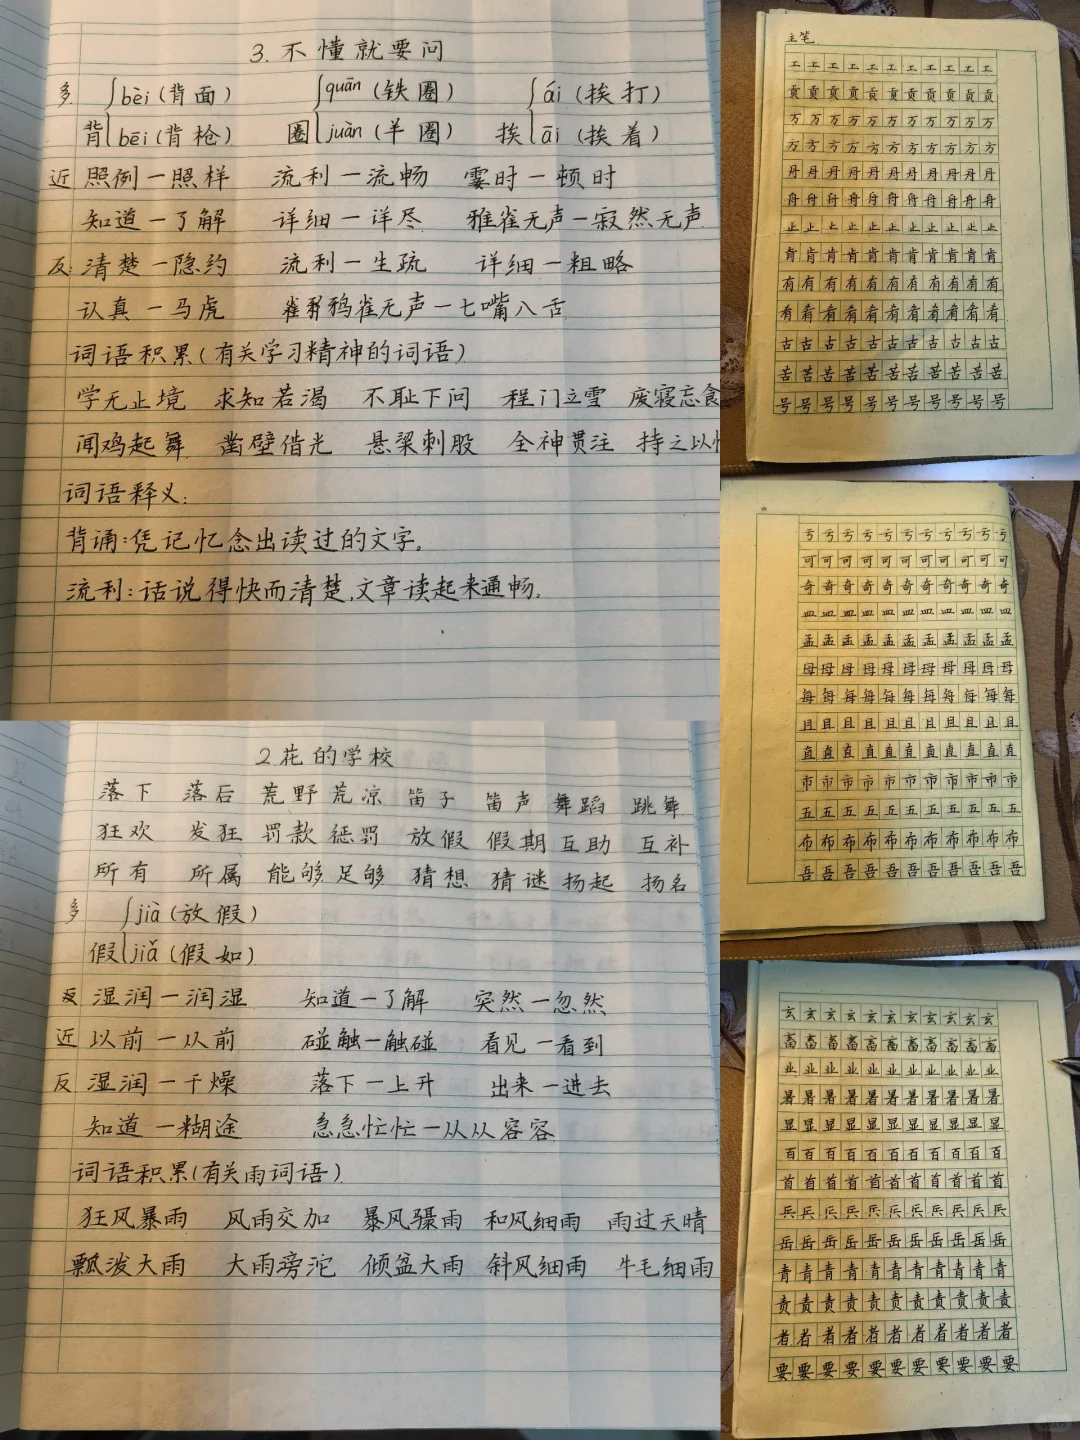 3.不懂就要问
多 bèi(背面) quān(铁圈) ái(挨打)
背 bēi(背枪) 圈 juàn(羊圈) 挨 āi(挨着)
近 照例一照样 流利一流畅 霎时一顿时
知道一了解 详细一详尽 雅雀无声一寂然无声
反:清楚一隐约 流利一生疏 详细一粗略
认真一马虎 鸦雀无声一七嘴八舌
词语积累(有关学习精神的词语)
学无止境 求知若渴 不耻下问 程门立雪 废寝忘食
闻鸡起舞 凿壁借光 悬梁刺股 全神贯注 持之以
词语释义:
背诵:凭记忆念出读过的文字。
流利:话说得快而清楚,文章读起来通畅。
2.花的学校
落下 落后 荒野 荒凉 笛子 笛声 舞蹈 跳舞
狂欢 发狂 罚款 惩罚 放假 假期 互助 互补
所有 所属 能够 足够 猜想 猜谜 扬起 扬名
多 jià(放假)
假 jiǎ(假如)
湿润一润湿 知道一了解 突然一忽然
近 以前一从前 碰触一触碰 看见一看到
反 湿润一干燥 落下一上升 出来一进去
知道一糊途 急急忙忙一从从容容
词语积累(有关雨词语)
狂风暴雨 风雨交加 暴风骤雨 和风细雨 雨过天晴
瓢泼大雨 大雨滂沱 倾盆大雨 斜风细雨 牛毛细雨
主笔
工工工工工工工工工工
贡贡贡贡贡贡贡贡贡贡
万万万万万万万万万万
方方方方方方方方方方
丹丹丹丹丹丹丹丹丹丹
舟舟舟舟舟舟舟舟舟舟
止止止止止止止止止止止
肯肯肯肯肯肯肯肯肯肯肯
有有有有有有有有有有有
肴肴肴肴肴肴肴肴肴肴肴
古古古古古古古古古古古
苦苦苦苦苦苦苦苦苦苦苦
号号号号号号号号号号号
亏亏亏亏亏亏亏亏亏亏亏
可可可可可可可可可可可
奇奇奇奇奇奇奇奇奇奇奇
皿皿皿皿皿皿皿皿皿皿皿
孟孟孟孟孟孟孟孟孟孟孟
母母母母母母母母母母母
每每每每每每每每每每每
且且且且且且且且且且且
直直直直直直直直直直直
市市市市市市市市市市市
五五五五五五五五五五五
布布布布布布布布布布布
吾吾吾吾吾吾吾吾吾吾吾
玄玄玄玄玄玄玄玄玄玄玄
畜畜畜畜畜畜畜畜畜畜畜
业业业业业业业业业业业
暑暑暑暑暑暑暑暑暑暑暑
显显显显显显显显显显显
百百百百百百百百百百百
首首首首首首首首首首首
兵兵兵兵兵兵兵兵兵兵兵
岳岳岳岳岳岳岳岳岳岳岳
青青青青青青青青青青青
责责责责责责责责责责责
者者者者者者者者者者者
要要要要要要要要要要要